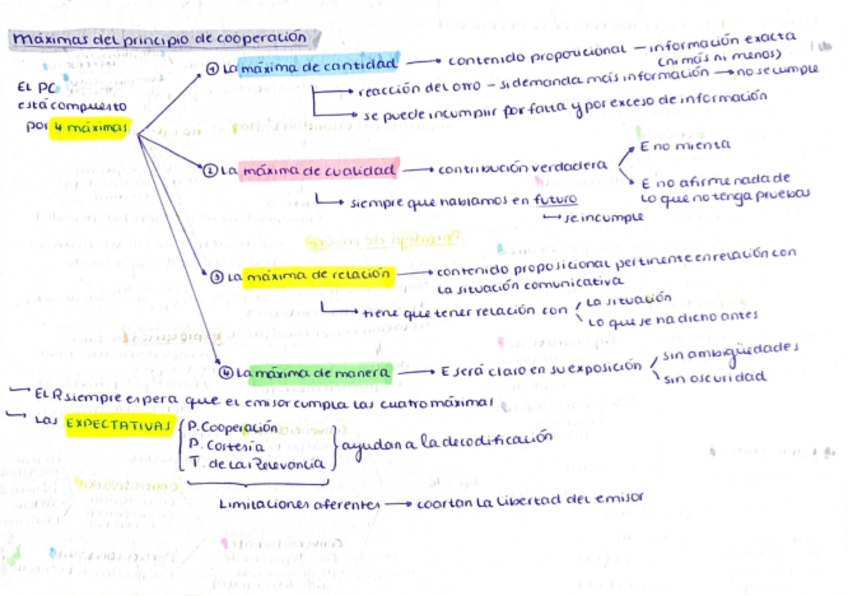 máximas del principio de cooperación
EL PC
está compuesto
por 4 máximas
① La máxima de cantidad → contenido proposicional – información exacta
(ni más ni menos)
→ reacción del otro – si demanda más información → no se cumple
→ se puede incumplir por falta y por exceso de información
② La máxima de cualidad → contribución verdadera
E no mienta
E no afirme nada de
lo que no tenga pruebas
→ siempre que hablamos en futuro
→ se incumple
③ La máxima de relación → contenido proposicional pertinente en relación con
la situación comunicativa
→ tiene que tener relación con
la situación
lo que se ha dicho antes
④ La máxima de manera → E será claro en su exposición
sin ambigüedades
sin oscuridad
→ EL R siempre espera que el emisor cumpla las cuatro máximas
→ Las EXPECTATIVAS
P. Cooperación
P. Cortesía
T. de la Relevancia
ayudan a la decodificación
Limitaciones aferentes → coartan la libertad del emisor